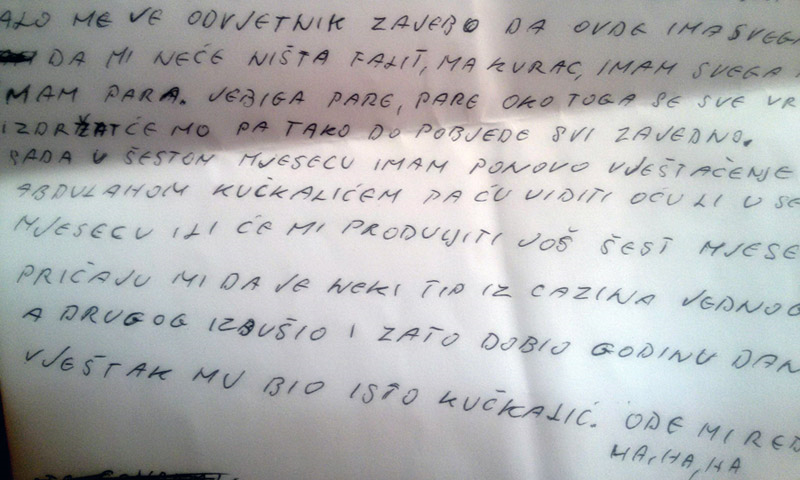 ALO ME VE ODVJETNIK ZAJEBO DA OVDE IMA SVEGA
DA MI NEĆE NIŠTA FALIT, MA KURAC, IMAM SVEGA
MAM PARA. JEBIGA PARE, PARE OKO TOGA SE SVE VR
IZDRŽATĆE MO PA TAKO DO POBJEDE SVI ZAJEDNO.
SADA U ŠESTOM MJESECU IMAM PONOVO VJEŠTAČENJE
ABDULAHOM KUČKALIĆEM PA ĆU VIDITI OĆU LI U SE
MJESECU ILI ĆE MI PRODULJITI JOŠ ŠEST MJESE
PRIČAJU MI DA JE NEKI TIP IZ CAZINA JEDNOG
A DRUGOG IZBUŠIO I ZATO DOBIO GODINU DAN
VJEŠTAK MU BIO ISTO KUČKALIĆ. ODE MI RED
HA, HA, HA